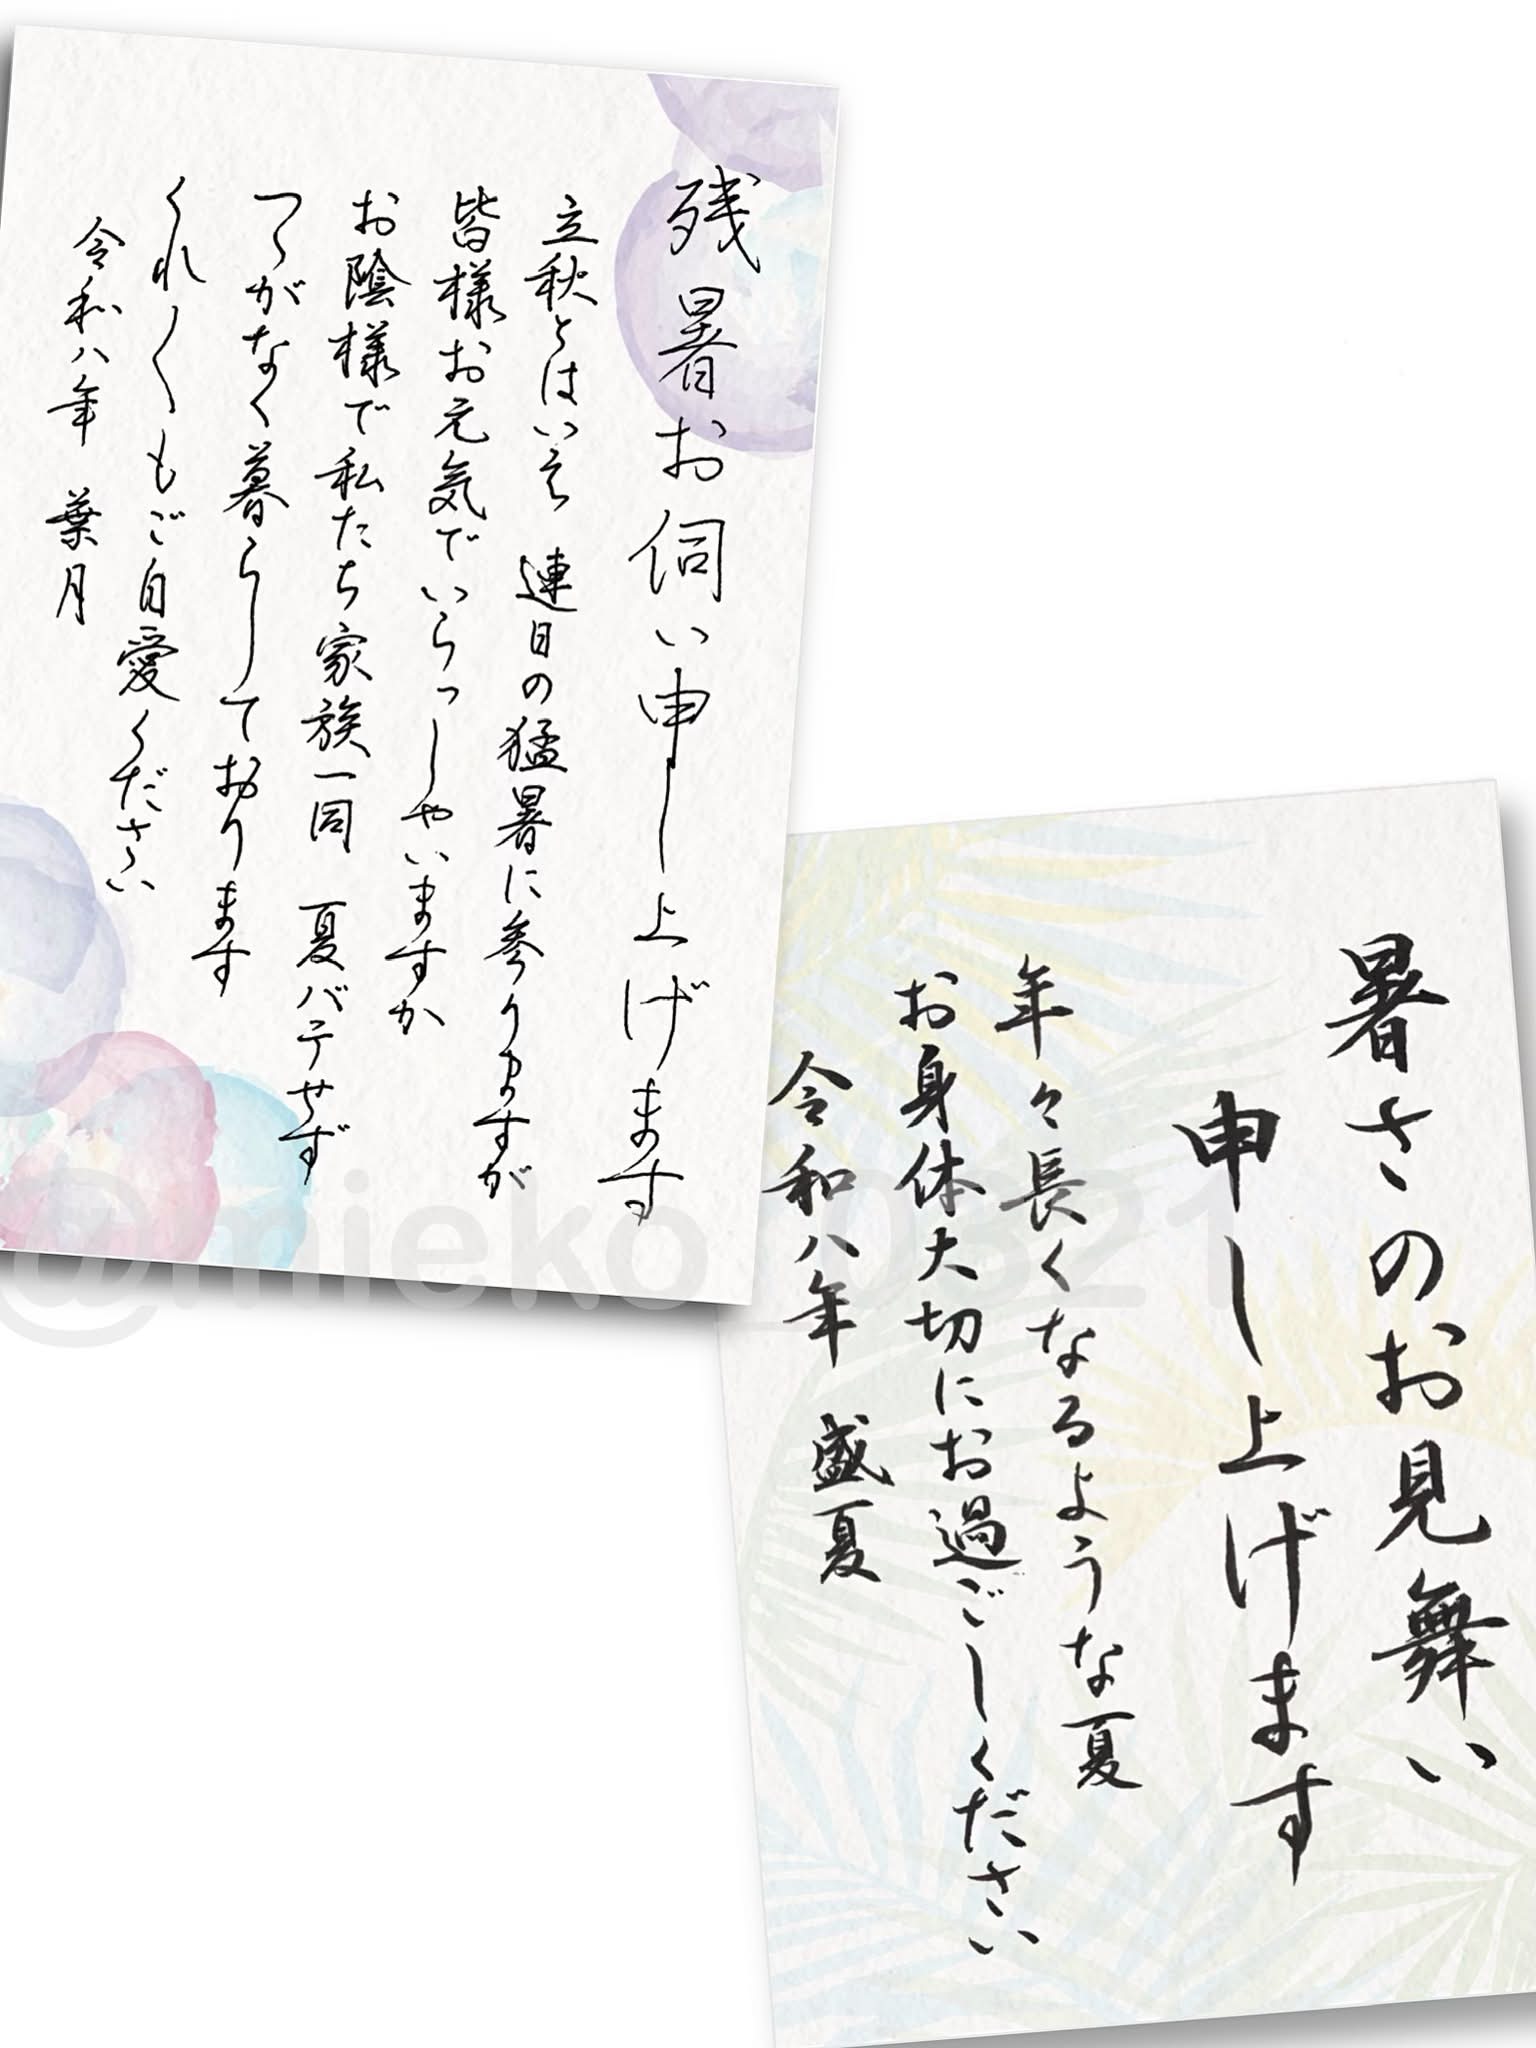 残暑お伺い申し上げます
立秋とはいえ 連日の猛暑に参りますが
皆様お元気でいらっしゃいますか
お陰様で私たち家族一同 夏バテせず
つゝがなく暮らしております
くれ〲もご自愛ください
令和八年 葉月
暑さのお見舞い
申し上げます
年々長くなるような夏
お身体大切にお過ごしください
令和八年 盛夏
@mieko_0321